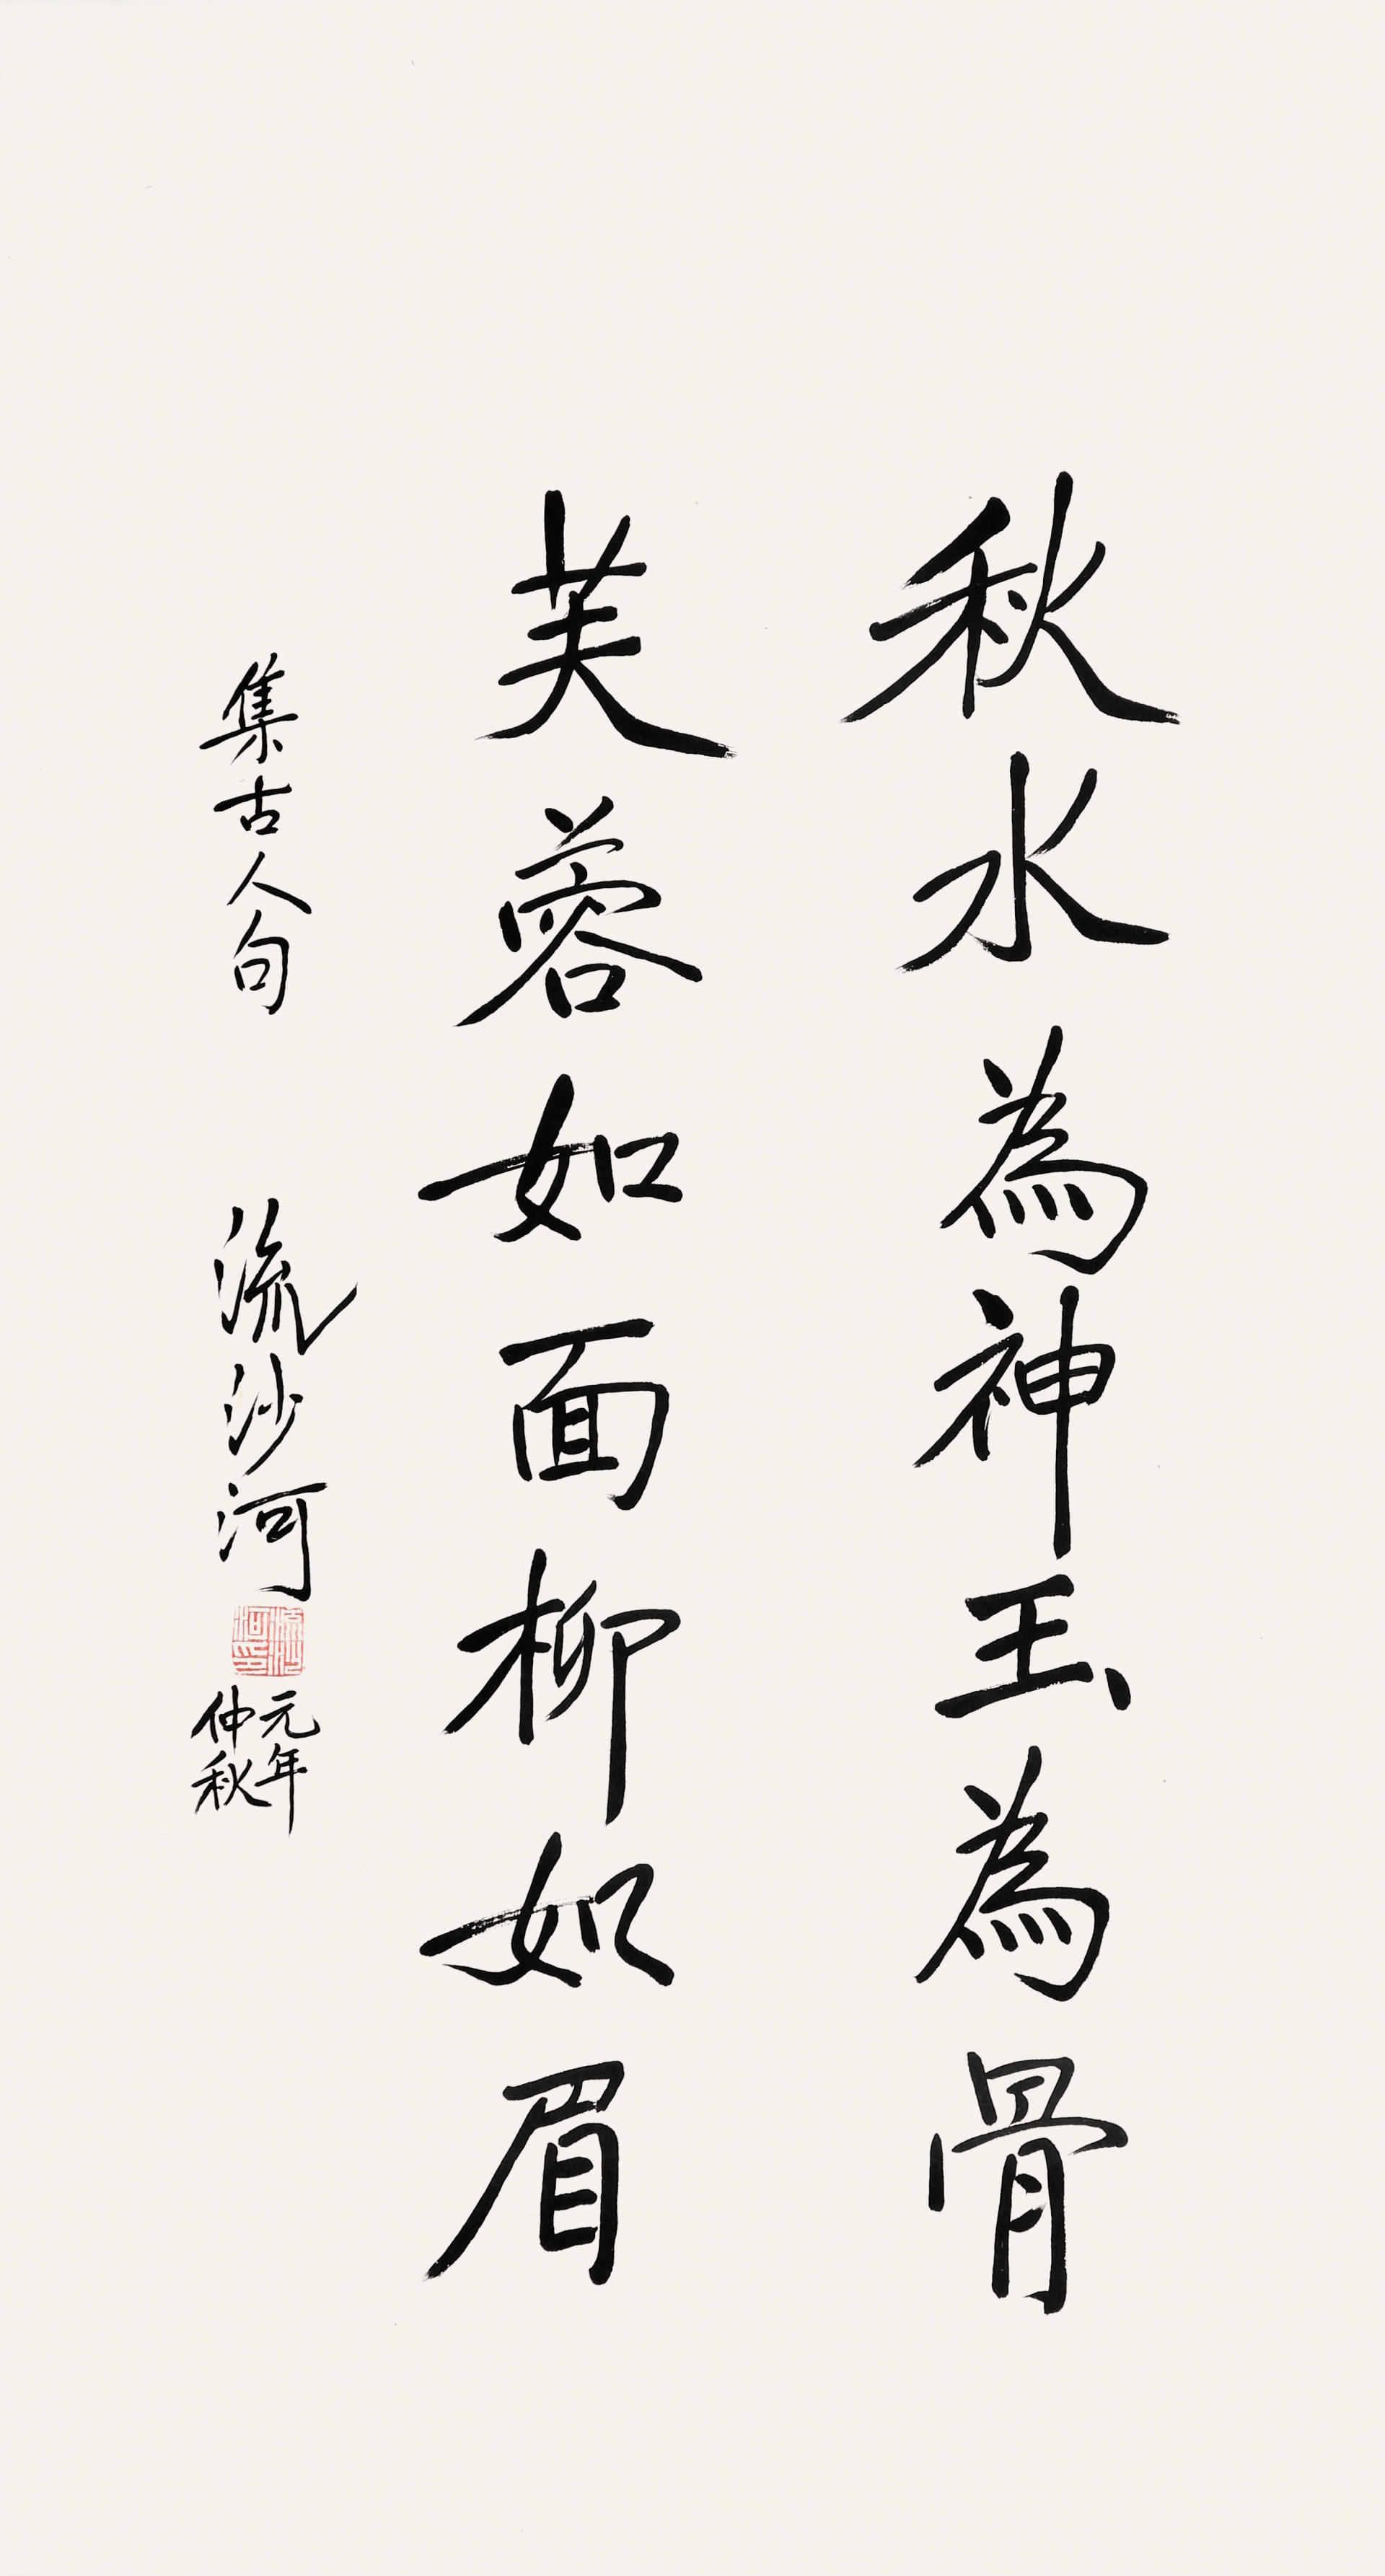 秋水為神玉為骨
芙蓉如面柳如眉
集古人句
流沙河
流沙河印
元年
仲秋